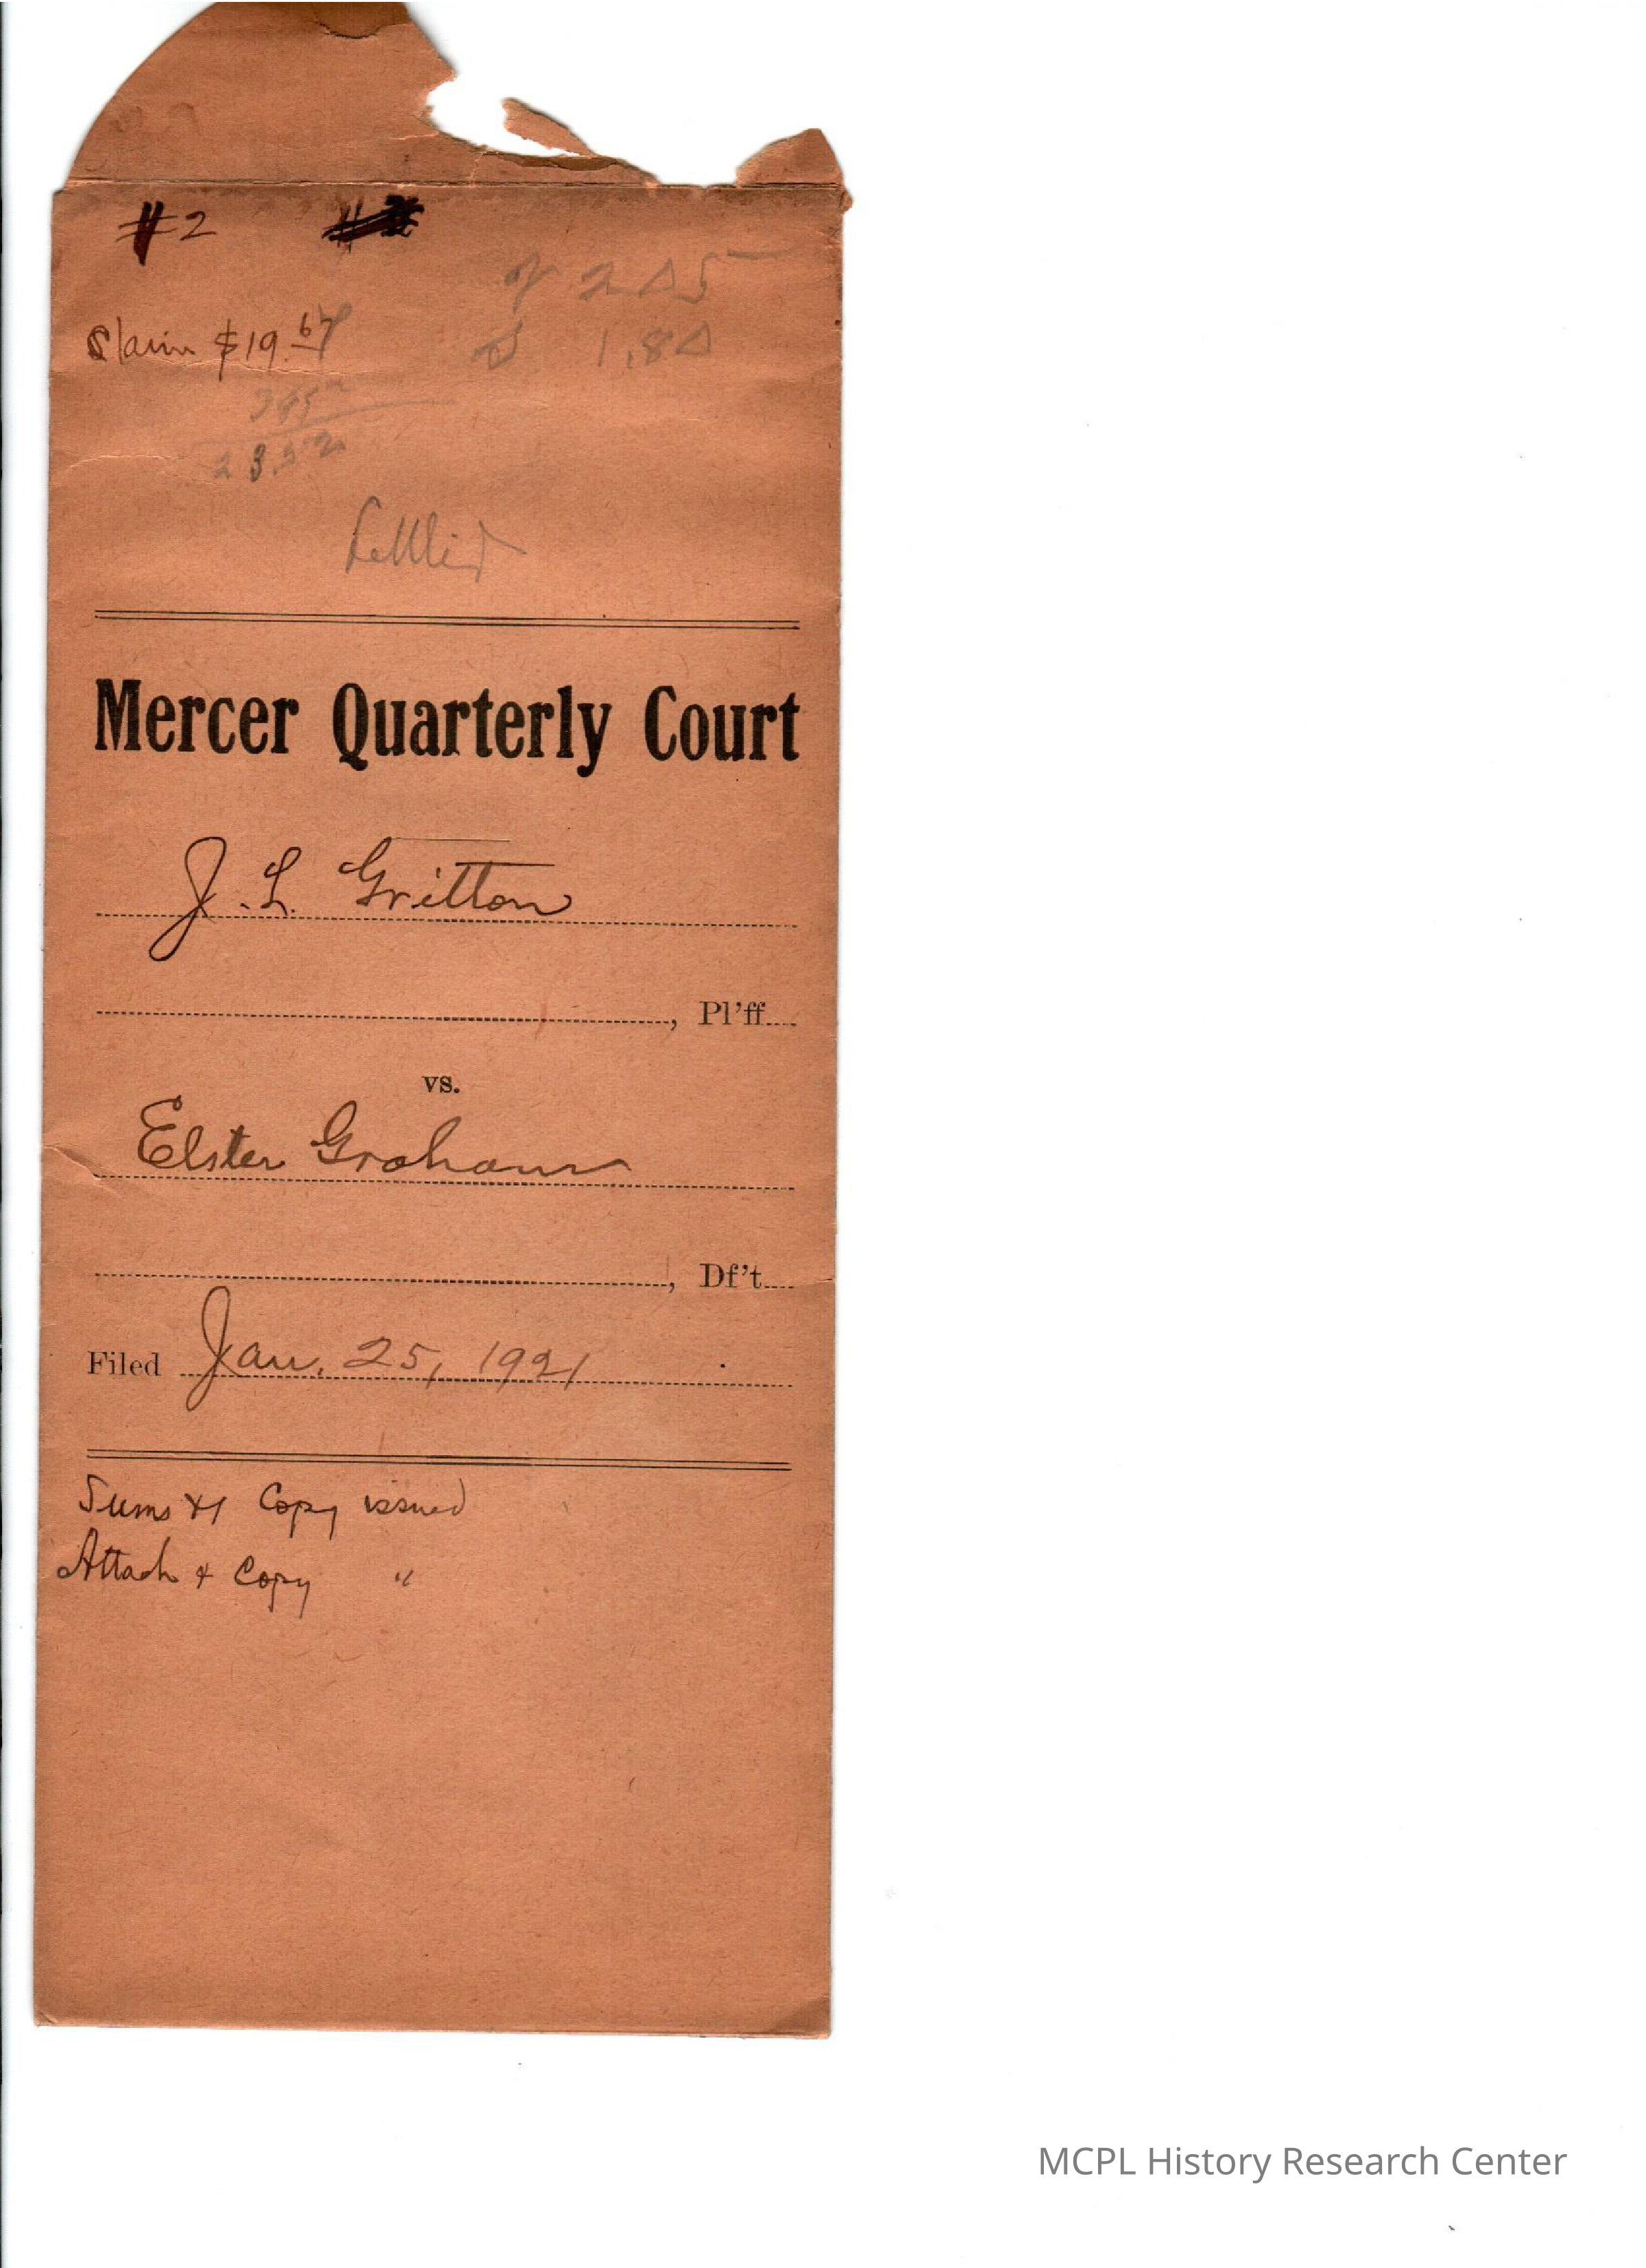 #2
Claim $19.67
2 05
1.80
385
23.52
Settled
Mercer Quarterly Court
J. L. Gritton
, Pl'ff
vs.
Elster Graham
, Df't
Filed Jan. 25, 1921
Sums & 1 Copy issued
Attach & Copy "
MCPL History Research Center